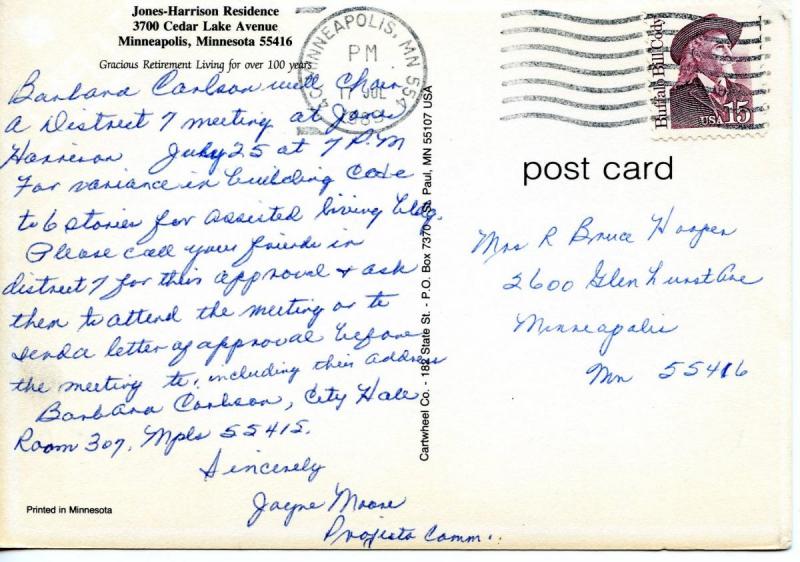 Jones-Harrison Residence
3700 Cedar Lake Avenue
Minneapolis, Minnesota 55416
Gracious Retirement Living for over 100 years
Barbara Carlson will chair
a District 7 meeting at Jones
Harrison July 25 at 7 P.M
For variance in building Code
to 6 stories for assisted living bldg.
Please call your friends in
district 7 for this approval & ask
them to attend the meeting or to
send a letter of approval before
the meeting to, including their address
Barbara Carlson, City Hall
Room 307, Mpls 55415.
Sincerely
Jayne Moore
Projects Comm.
Printed in Minnesota
Cartwheel Co. - 182 State St. - P.O. Box 7370 - St. Paul, MN 55107 USA
MINNEAPOLIS, MN 554
PM
17 JUL
Buffalo Bill Cody
USA 15
post card
Mrs R Bruce Hooper
2600 Glenhurst Ave
Minneapolis
Mn 55416